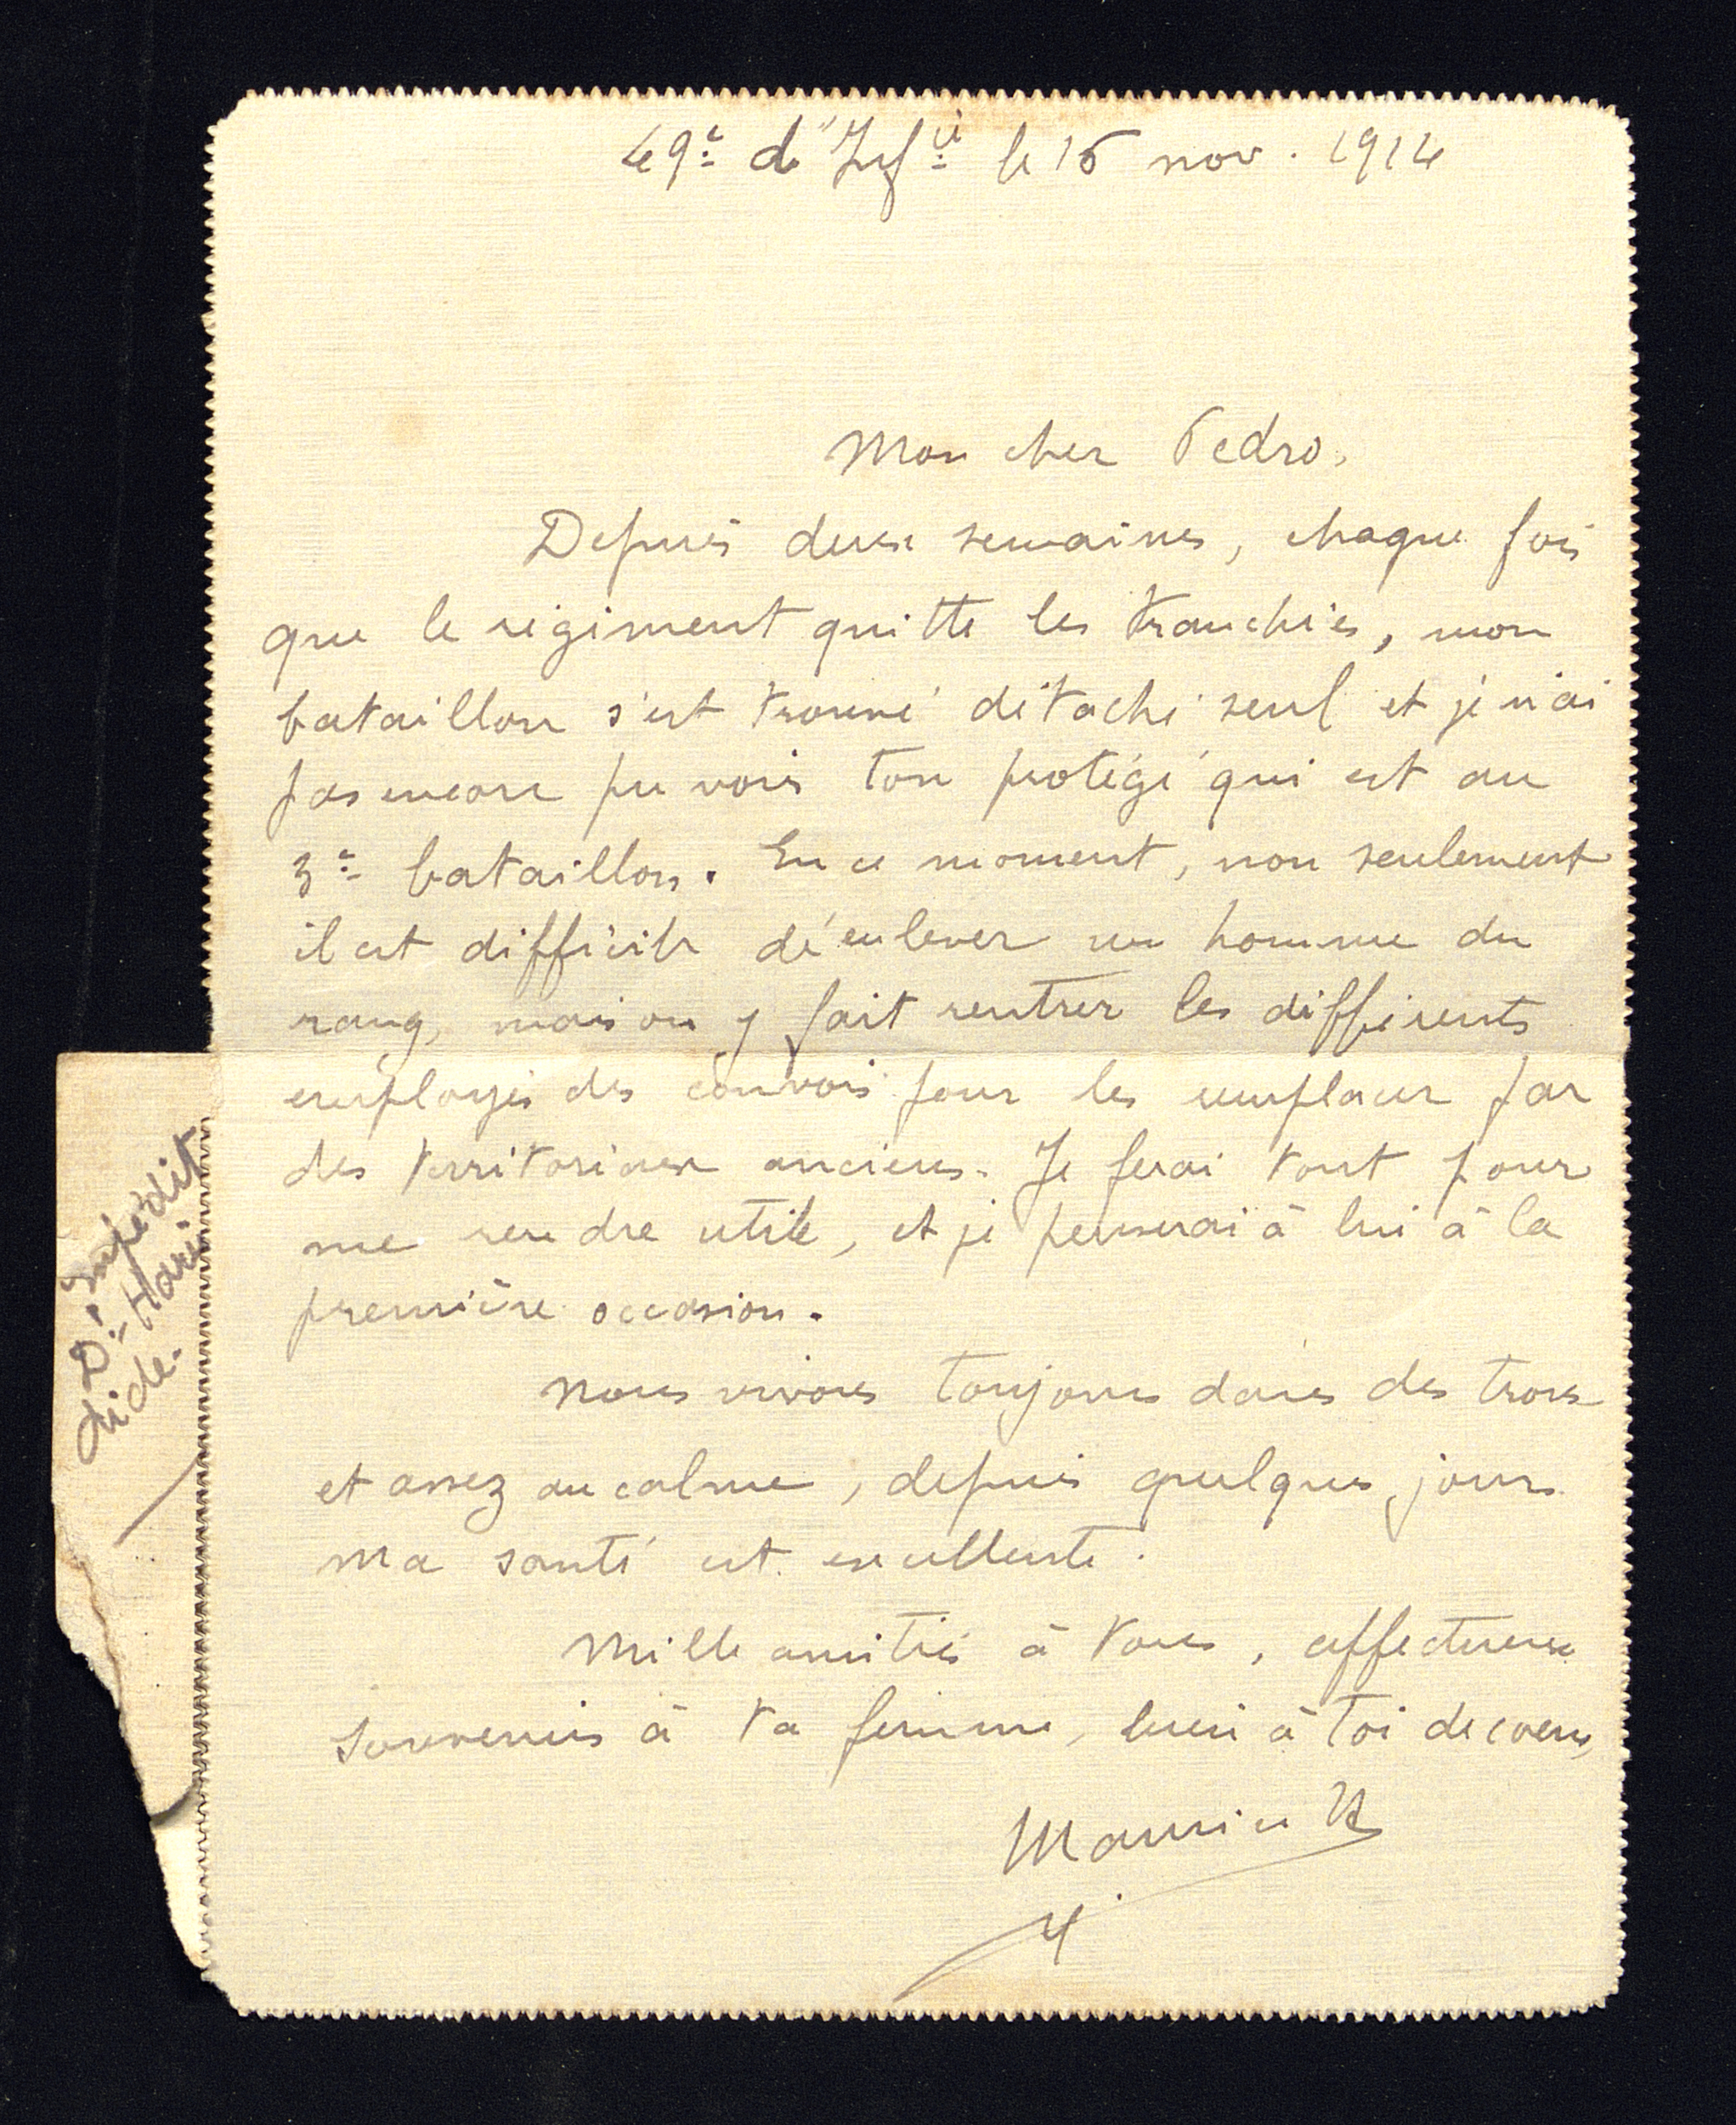 49e d'Infie le 16 nov. 1914
Mon cher Pedro,
Depuis deux semaines, chaque fois
que le régiment quitte les tranchées, mon
bataillon s'est trouvé détaché seul et je n'ai
pas encore pu voir ton protégé qui est au
3e bataillon. En ce moment, non seulement
il est difficile d'enlever un homme du
rang, mais on y fait rentrer les différents
employés des convois pour les remplacer par
des territoriaux anciens. Je ferai tout pour
me rendre utile, et je penserai à lui à la
première occasion.
Nous vivons toujours dans des trous
et assez au calme, depuis quelques jours
ma santé est excellente.
Mille amitiés à tous, affectueux
souvenirs à ta femme, bien à toi de cœur,
Maurice
Impédit
Dr